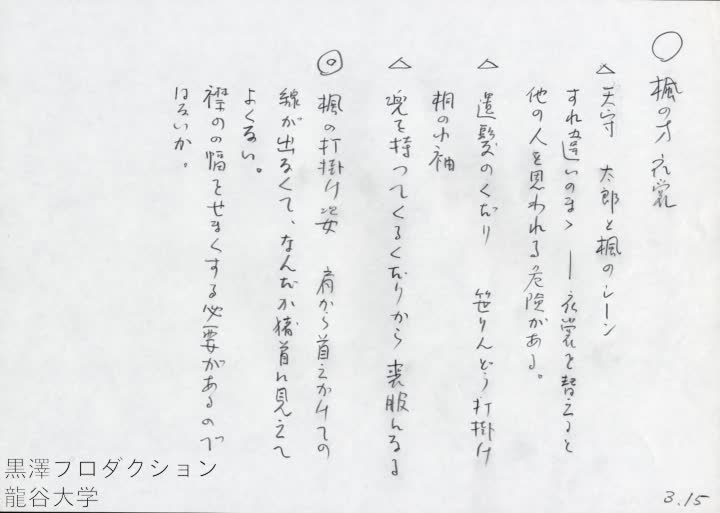 ○ 楓の方衣裳
△ 天守 太郎と楓のシーン
すれ違いのまゝ ― 衣裳を替えると
他の人と思われる危険がある。
△ 遺髪のくだり 笹りんどう打掛け
桐の小袖
△ 兜を持ってくるくだりから 喪服になる
◎ 楓の打掛け姿 肩から首にかけての
線が出なくて、なんだか猪首に見えて
よくない。
襟のの幅をせまくする必要があるので
はないか。
黒澤プロダクション
龍谷大学
3.15